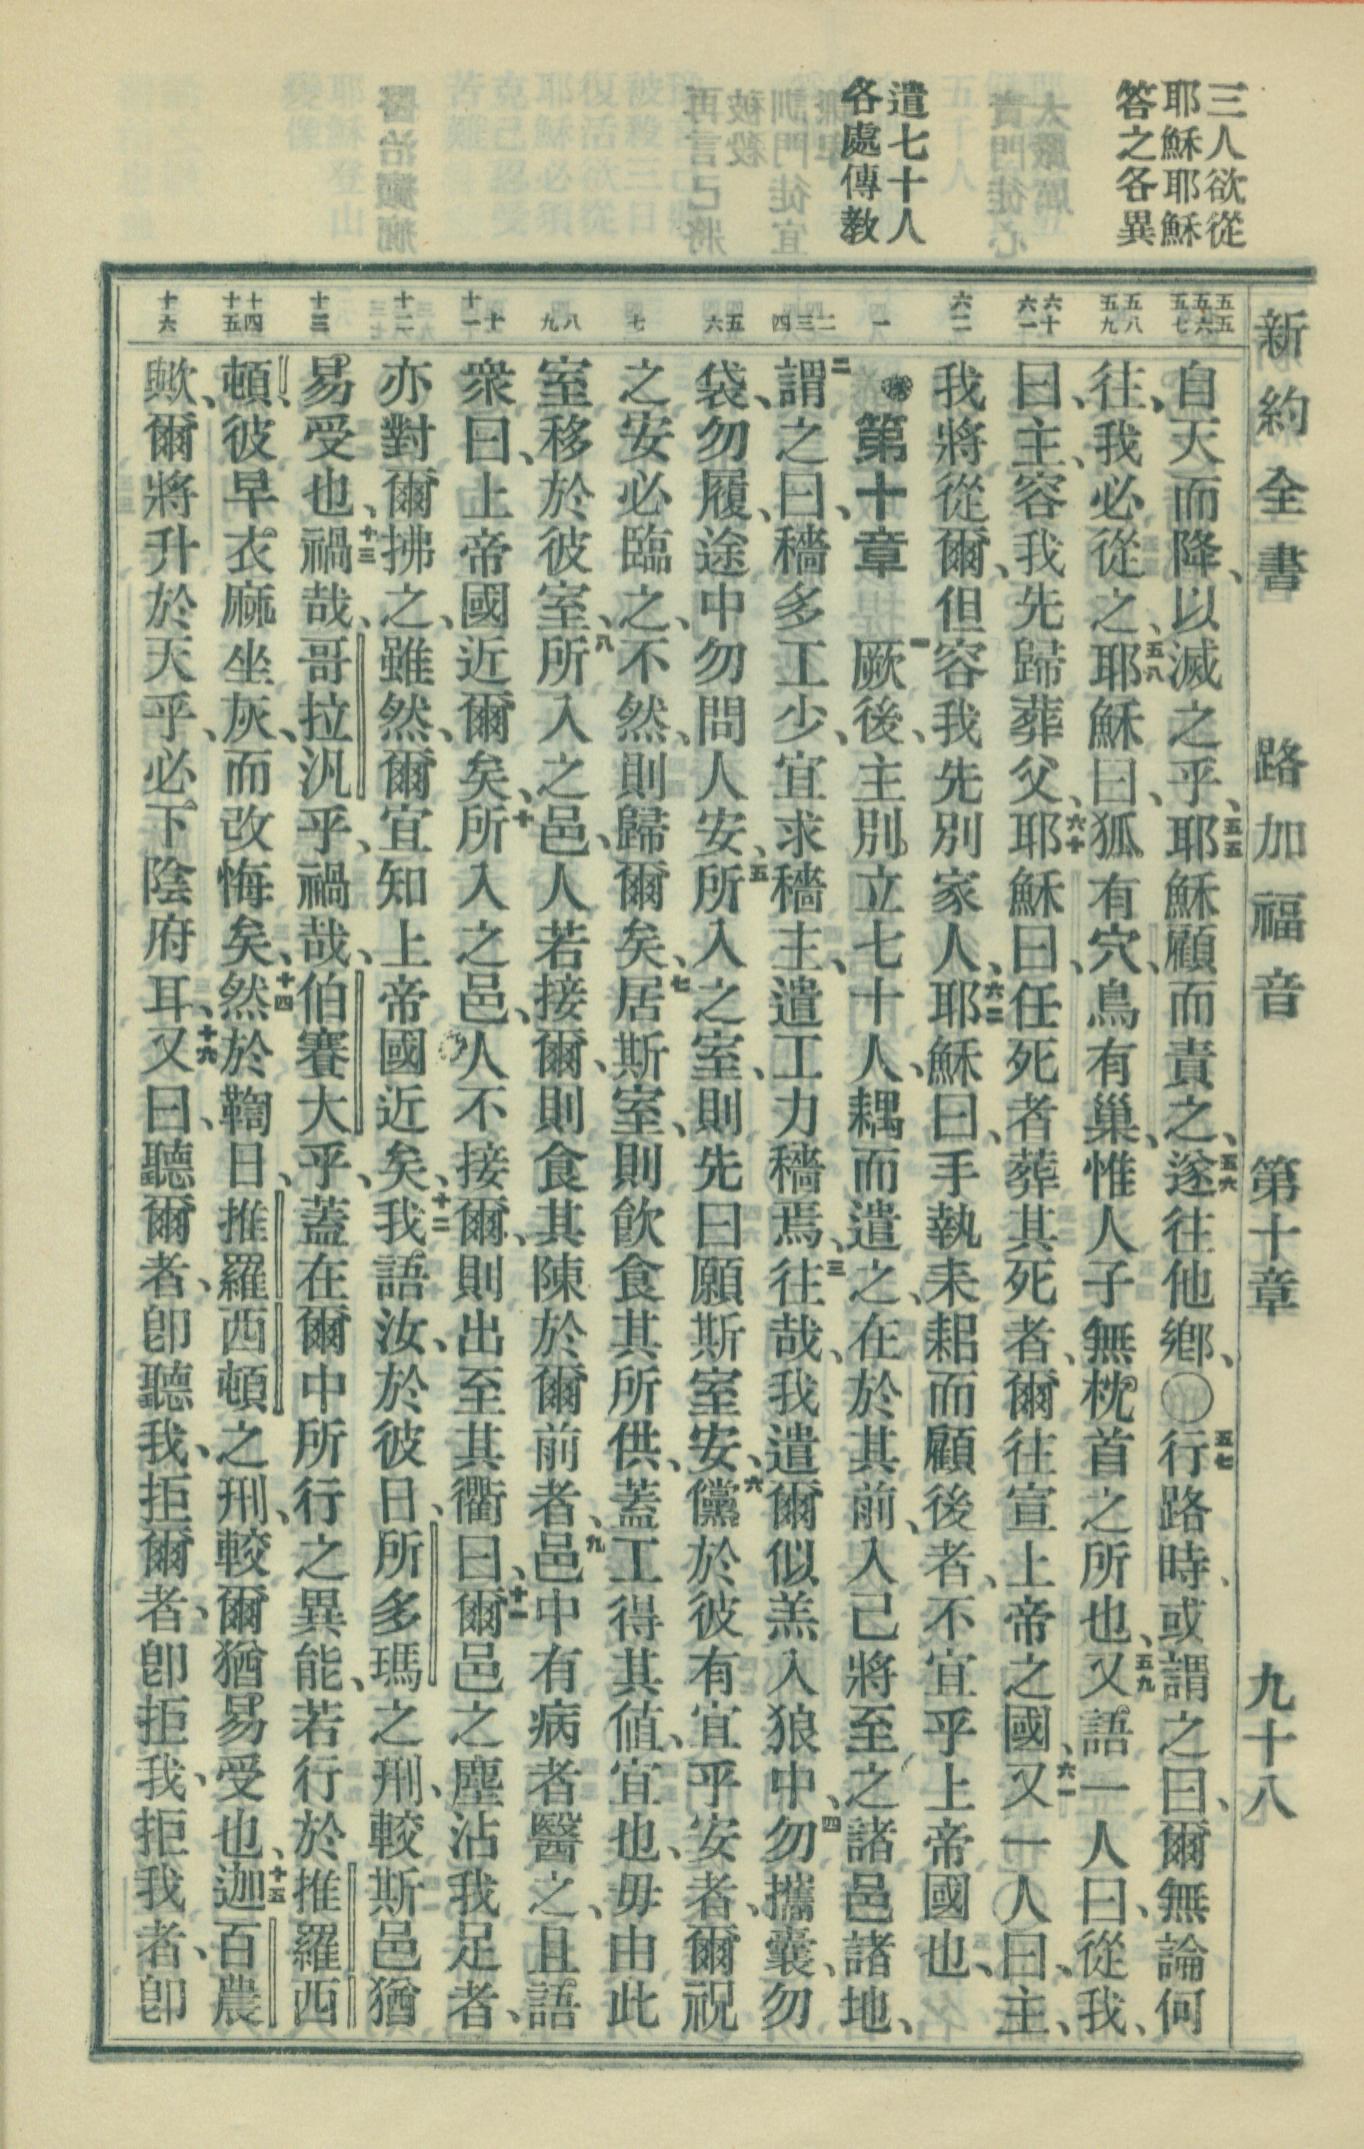 三人欲從
耶穌耶穌
答之各異
遣七十人
各處傳教
新約全書 路加福音 第十章 九十八
五五 五六 五七
五八 五九
六十 六一
六二
一
二 三 四
五 六
七
八 九
十 十一
十二
十三
十四 十五
十六
自天而降、以滅之乎、五五耶穌顧而責之、五六遂往他鄉、〇五七行路時、或謂之曰、爾無論何
往、我必從之、五八耶穌曰、狐有穴、鳥有巢、惟人子無枕首之所也、五九又語一人曰、從我、
曰、主、容我先歸葬父、六十耶穌曰、任死者葬其死者、爾往宣上帝之國、六一又一人曰、主、
我將從爾、但容我先別家人、六二耶穌曰、手執耒耜而顧後者、不宜乎上帝國也、
第十章 一厥後、主別立七十人、耦而遣之、在於其前、入己將至之諸邑諸地、
二謂之曰、穡多工少、宜求穡主、遣工力穡焉、三往哉、我遣爾似羔入狼中、四勿攜囊、勿
袋、勿履、途中勿問人安、五所入之室、則先曰願斯室安、六儻於彼有宜乎安者、爾祝
之安必臨之、不然、則歸爾矣、七居斯室、則飲食其所供、蓋工得其値、宜也、毋由此
室移於彼室、八所入之邑、人若接爾、則食其陳於爾前者、九邑中有病者醫之、且語
衆曰、上帝國近爾矣、十所入之邑、人不接爾、則出至其衢曰、十一爾邑之塵沾我足者、
亦對爾拂之、雖然、爾宜知上帝國近矣、十二我語汝、於彼日、所多瑪之刑、較斯邑猶
易受也、十三禍哉、哥拉汛乎、禍哉、伯賽大乎、蓋在爾中所行之異能、若行於推羅西
頓、彼早衣麻坐灰、而改悔矣、十四然於鞫日、推羅西頓之刑、較爾猶易受也、十五迦百農
歟、爾將升於天乎、必下陰府耳、十六又曰、聽爾者、卽聽我、拒爾者、卽拒我、拒我者、卽